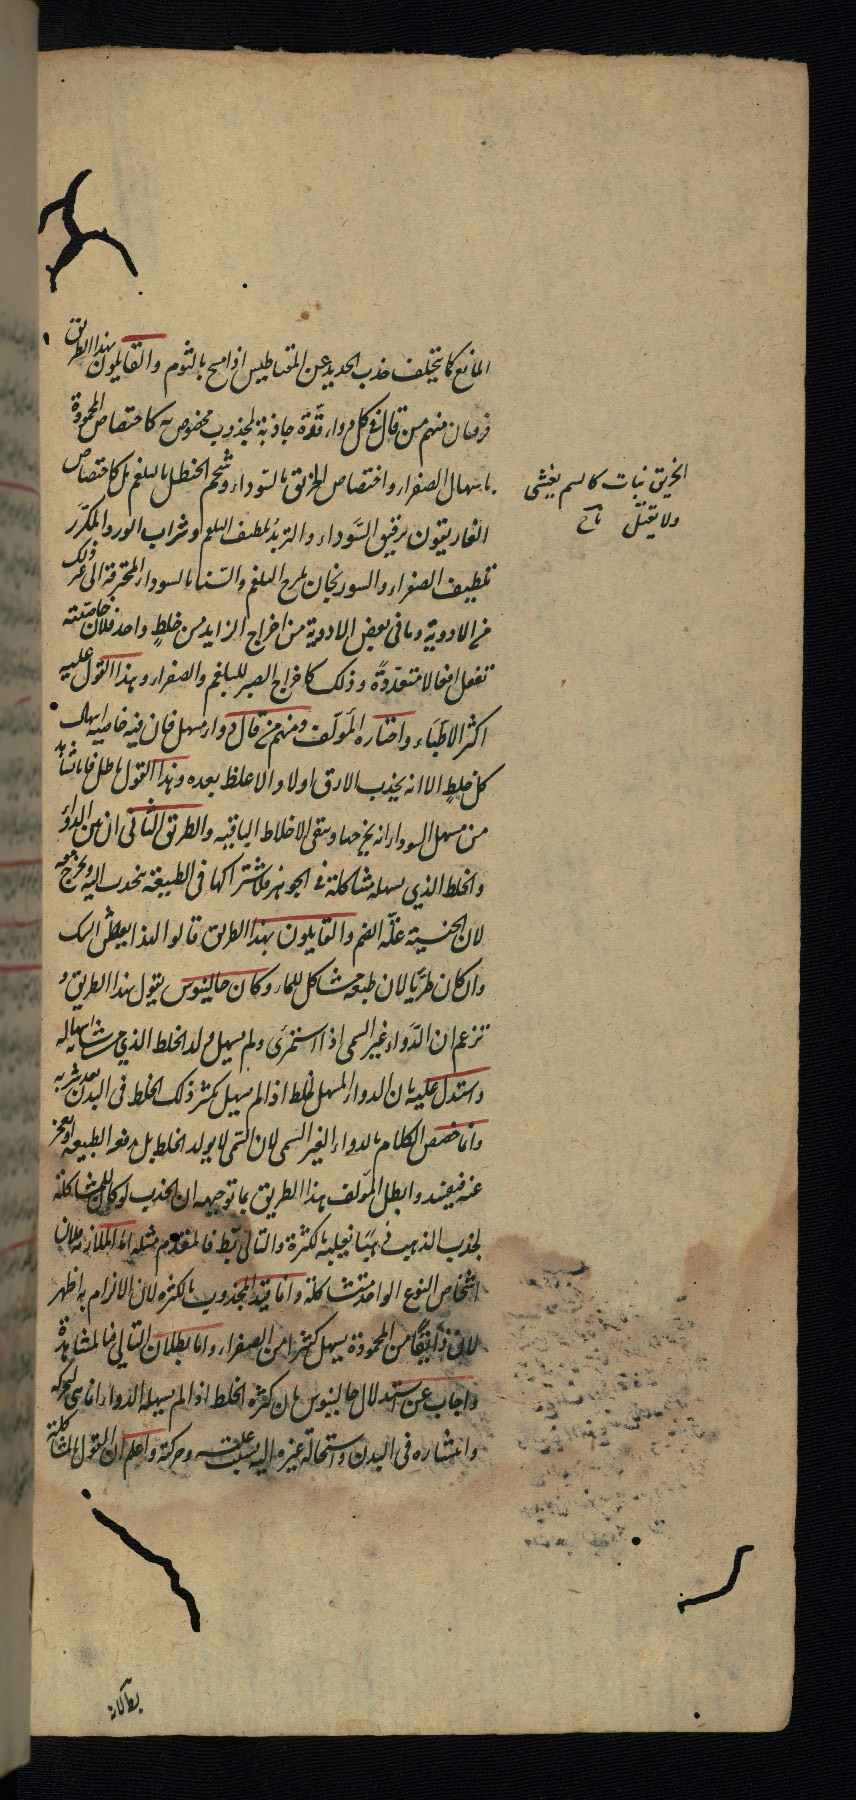 المانع كما يتخلف جذب الحديد عن المغناطيس اذا مسح بالثوم والقايلون بهذا الطريق
فرقتان منهم من قال في كل دواء قوّة جاذبة لمجذوب مخصوص به كاختصاص المحمودة
باسهال الصفراء واختصاص الخربق بالسوداء وشحم الحنظل بالبلغم بل كاختصاص
الغاريقون برقيق السَّوداء والتربدُ بلطيف البلغم وشراب الورد المكرّر
بلطيف الصفراء والسورنجان بلزج البلغم والسنا بالسوداء المحترقة الى غير ذلك
من الادوية وما في بعض الادوية من اخراج الزايد من خلطٍ واحد فلان خاصّيته
تفعل افعالا متعدّدةً وذلك كاخراج الصبر للبلغم والصفراء وهذا القول عليه
اكثر الاطبّاء واختاره المؤلّف ومنهم من قال كل دواء مسهل فان فيه خاصيه اسهال
كل خلطٍ الا انه يجذب الارق اولا والاغلظ بعده وهذا القول باطل فانا نشاهد
من مسهل السوداء انه يخرجها ويبقى الاخلاط الباقيه والطريق الثاني ان بين الدواء
والخلط الذي يسهله مشاكلة في الجوهر فلاشتراكها في الطبيعة ينجذب اليه ويخرج معه
لان الجنسية علّة الضم والقايلون بهذا الطريق قالوا لهذا يعطّش السمك
وان كان طريّا لان طبعه مشاكل للماء وكان جالينوس يقول بهذا الطريق و
تزعم ان الدّواء غير السمى اذا استمرئ ولم يسهل ولد الخلط الذي من شانه اسهاله
واستدل عليه بان الدواء المسهل لخلط اذا لم يسهل يكثر ذلك الخلط في البدن بعد شربه
وانما خصص الكلام بالدواء الغير السمى لان السمى لا يولد الخلط بل يدفعه الطبيعة او تعجز
عنه فيفسد وابطل المؤلف هذا الطريق بما توجيهه ان الجذب لو كان للمشاكلة
لجذب الذهب ذهبًا يغلبه بالكثرة والتالى بط فالمقدم مثله اما الملازمة فلان
اشخاص النوع الواحد متشاكلة وانما قيد المجذوب بالكثرة لان الالزام به اظهر
لان دانقًا من المحمودة يسهل كثيرا من الصفراء واما بطلان التالي فبالمشاهدة
واجاب عن استدلال جالينوس بان كثرة الخلط اذا لم يسهله الدواء انما هي لتحركه
وانتشاره في البدن واستحالة غيره اليه بسبب غلبته وحركته واعلم ان القول بالمشاكلة
الخربق نبات كالسم يغشى
ولا يقتل تاج
بطآلانه